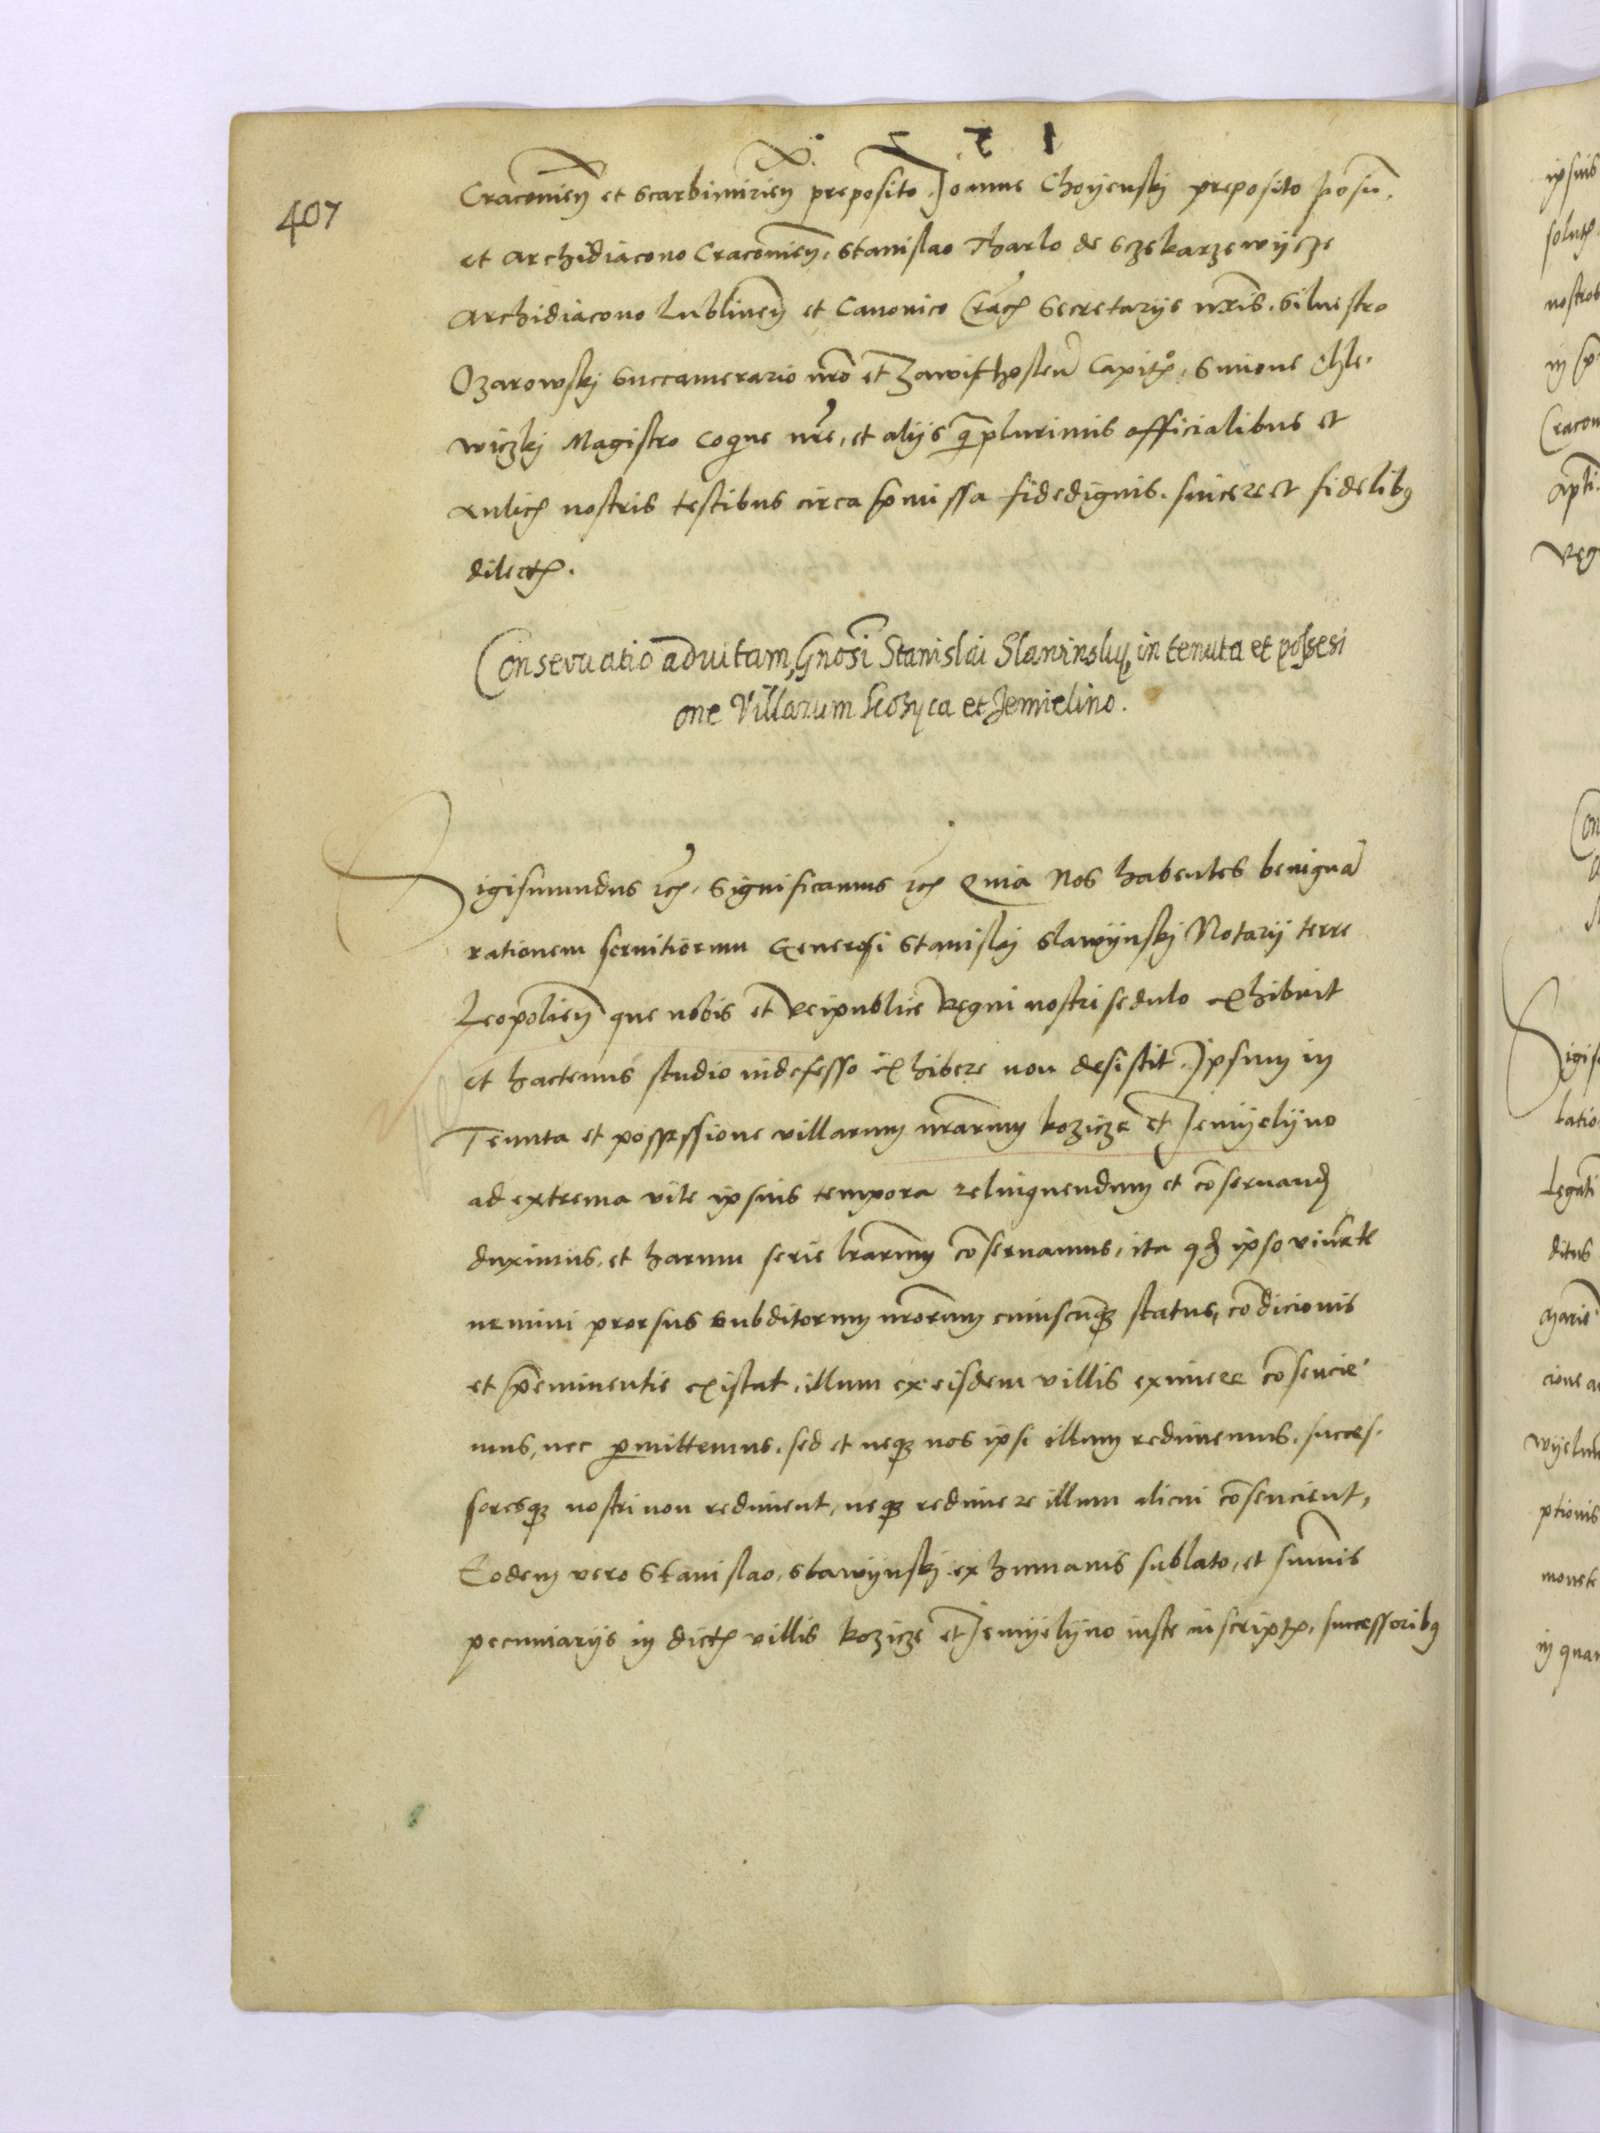 407
Cracovien et Scarbimirien preposito, Joanne Choyenskj preposito Posn.
et Archidiacono Cracovien, Stanislao Tharlo de Sczekarzewycze
Archidiacono Lublinen et Canonico Crac Secretarys nris. Siluestro
Ozarowskj Succamerario nro et Zawithosten Capit, Simone Chle-
wiczkj Magistro Coqne nre, et alijs qplurimis officialibus et
aulic nostris testibus circa pmissa fidedignis. sincere et fidelibq
dilect.
Consevuatio ad vitam, Gnosi Stanislai Slavinsky, in tenuta et possesi
one Villarum Kozyca et Jemielino.
Sigismundus etc. Significamus etc Quia Nos habentes benigna
rationem seruitiorum Generosi Stanislaj Slawynskj Notarij terre
Leopolien que nobis et Reipublice Regni nostri sedulo exhibuit
et hactenus studio indefesso exhibere non desistit. Ipsum in
Tenuta et possessione villarum nrarum kozicze et Jemyelyno
ad extrema vite ipsius tempora relinquendum et coseruand
duximus. et harum serie lrarum coseruamus, ita qd ipso viuente
nemini prorsus subditorum nrorum cuiuscunq status, codicionis
et peminentie existat, illum ex eisdem villis eximere cosencie-
mus, nec pmittemus. sed et neq nos ipsi illum redimemus. succes-
soresq nostri non rediment, neq redimere illum alicui cosencient,
Eodem vero Stanislao, Slawynskj ex humanis sublato, et sumis
pecuniarijs in dict villis kozicze et Jemyelyno iuste inscript, successoribq